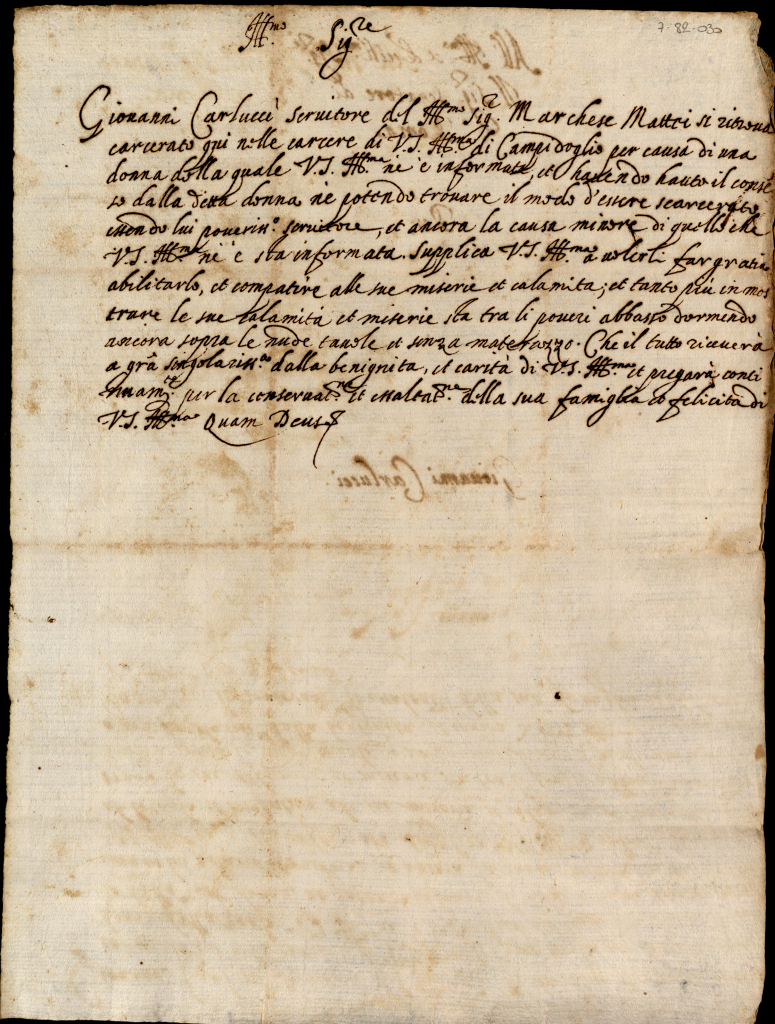 7-82-030
Ill.mo Sig.re
Giovanni Carlucci servitore del Ill.mo Sig.r Marchese Mattei si ritrova
carcerato qui nelle carcere di V.S. Ill.ma di Campidoglio per causa di una
donna della quale V.S. Ill.ma ne è informata, et havendo hauto il conse
so dalla detta donna ne potendo trovare il modo d'essere scarcerato
essendo lui poveriss.o servitore, et ancora la causa minore di quello che
V.S. Ill.ma ne è sta informata. Supplica V.S. Ill.ma a volerli far gratia
abilitarlo, et compatire alle sue miserie et calamita; et tanto piu in mos
trare le sue calamità et miserie sta tra li poveri abbasso dormendo
ancora sopra le nude tavole et senza materazzo. Che il tutto riceverà
a gra singolariss.a dalla benignita, et carità di V.S. Ill.ma et pregarà conti
nuam.te per la conservat.ne et essaltat.ne della sua famiglia et felicità di
V.S. Ill.ma Quam Deus
Giovanni Carlucci